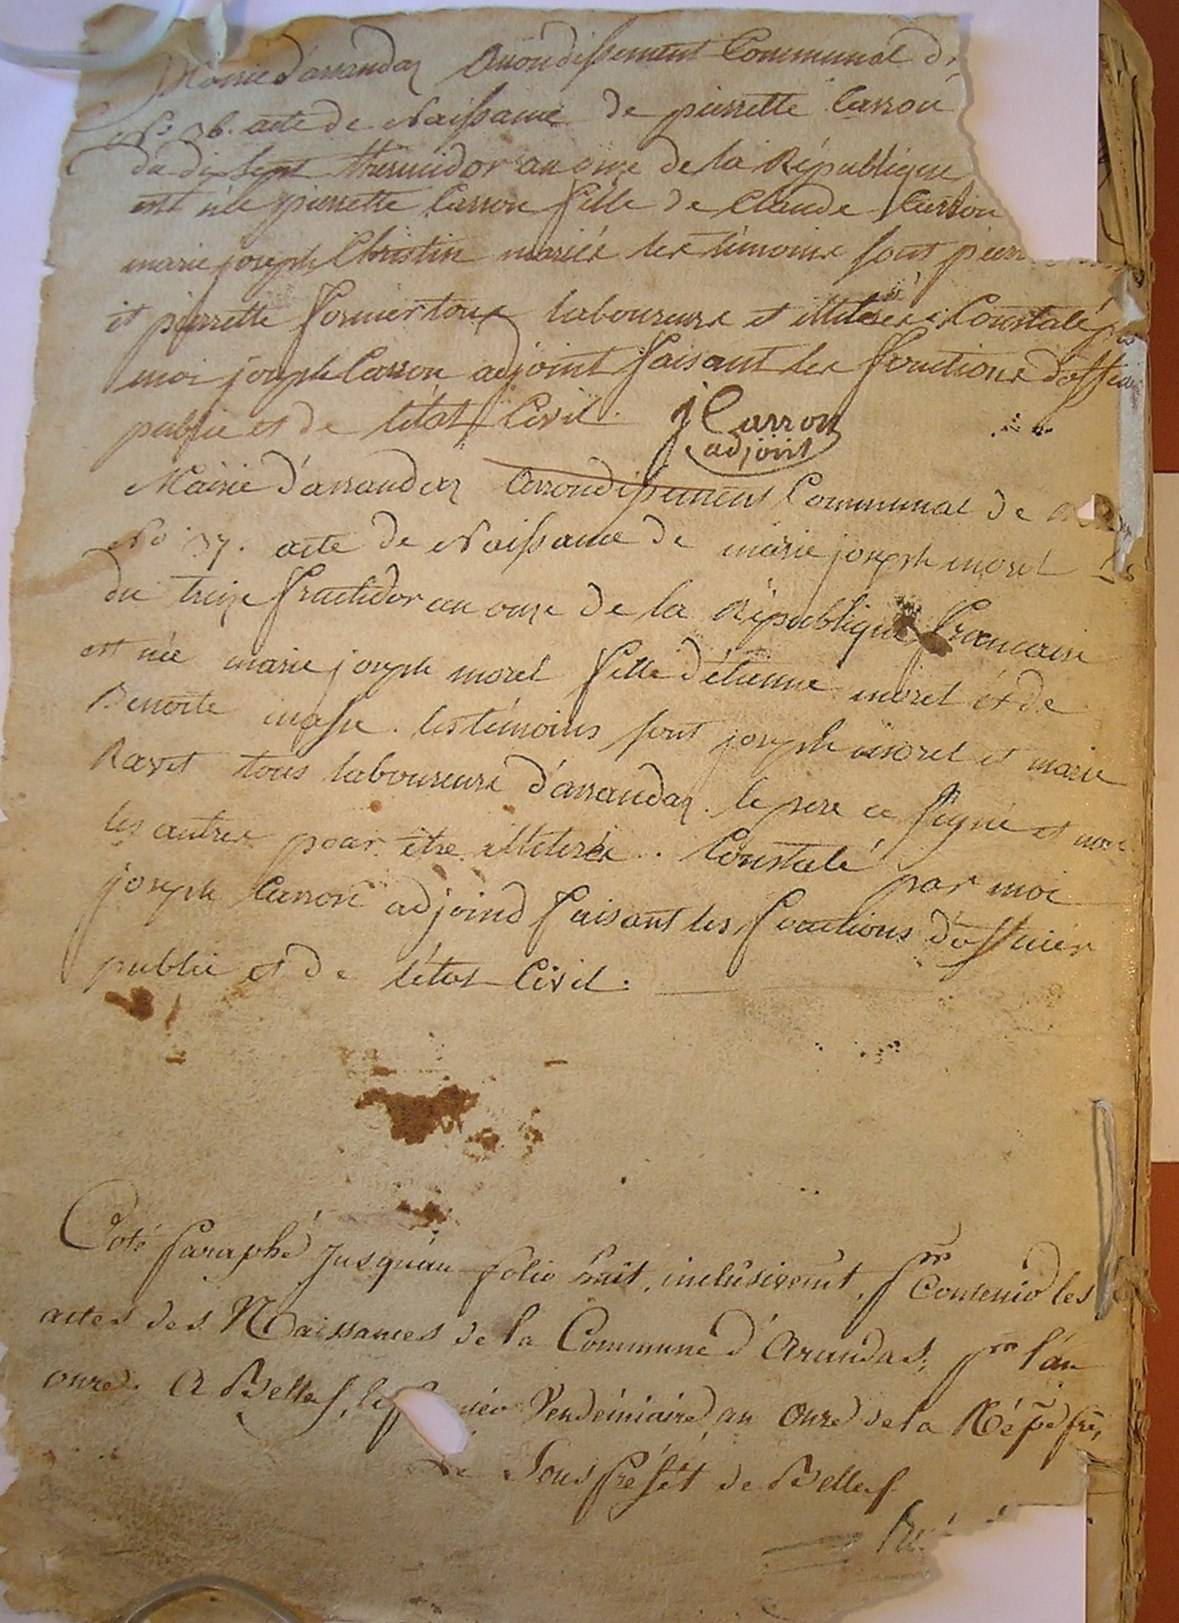 Mairie d'arrandaz Arrondissement Communal de
No 36. acte de Naissance de pierrette Carron
du dix sept thermidor an onze de la République
est née pierrette Carron fille de Claude Carron
marie joseph Christin mariés les témoins sont pierre
et pierrette fornier tous laboureurs et illiterés Constalé par
moi joseph Carron adjoint faisant les fonctions d'officier
public et de l'état Civil.
J Carron
adjoint
Mairie d'arrandaz Arrondissement Communal de
No 37. acte de Naissance de marie joseph morel
du treize fructidor an onze de la République francaise
est née marie joseph morel fille d'étienne morel et de
Benoite masse. les témoins sont joseph morel et marie
Ravet tous laboureurs d'arrandaz. le pere a signé et non
les autres pour être illiterés. Constalé par moi
joseph Carron adjoind faisant les fonctions d'officier
public et de l'état Civil.
Coté Paraphé Jusqu'au folio huit, inclusivemt, pr Contenir les
actes des Naissances de la Commune d'Arandas, pr l'an
onze. A Belley, le vendémiaire an Onze de la Répe frse,
Le Sous Préfét de Belley